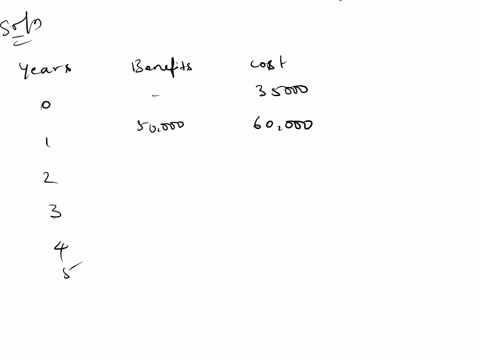 Soln
Years Benefits Cost
0 - 35000
1 50,000 60,000
2
3
4
5